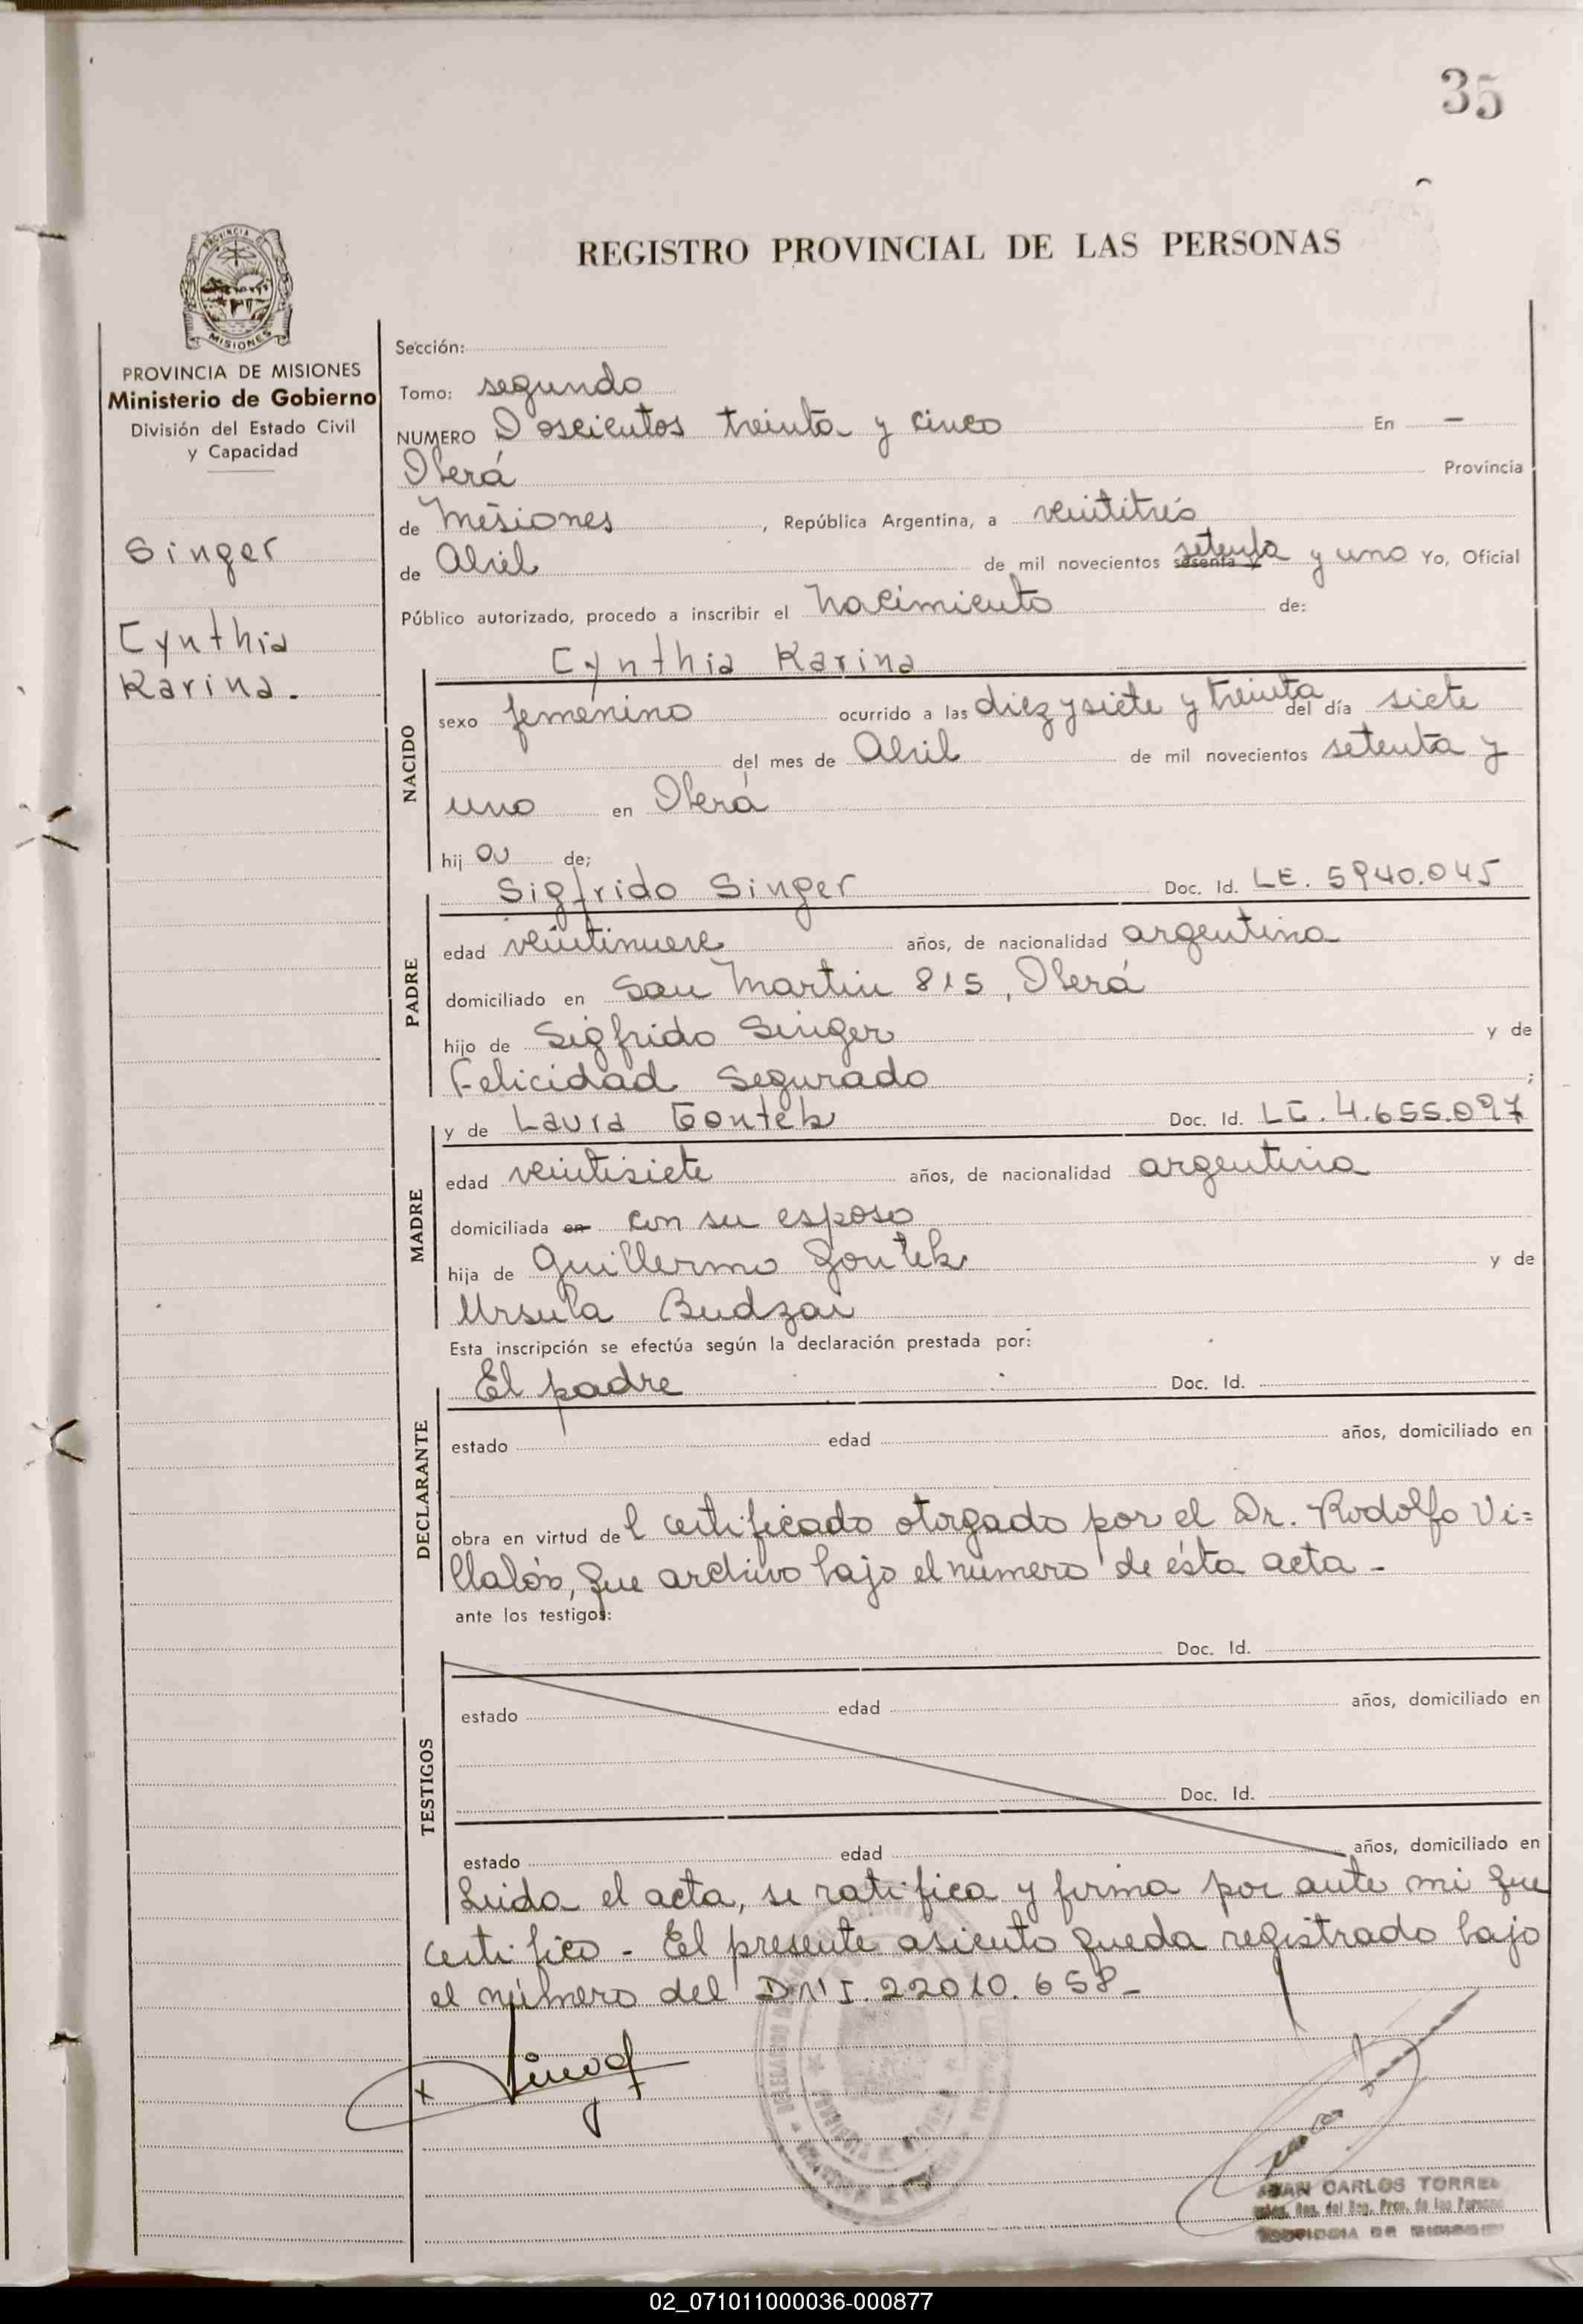 35
REGISTRO PROVINCIAL DE LAS PERSONAS
PROVINCIA DE MISIONES
Ministerio de Gobierno
División del Estado Civil
y Capacidad
Singer
Cynthia
Karina.
Sección:
Tomo: segundo
NUMERO Doscientos treinta y cinco En —
Oberá Provincia
de Misiones, República Argentina, a veintitrés
de Abril de mil novecientos sesenta y setenta y uno Yo, Oficial
Público autorizado, procedo a inscribir el Nacimiento de:
Cynthia Karina
NACIDO
sexo femenino ocurrido a las diez y siete y treinta del día siete
del mes de Abril de mil novecientos setenta y
uno en Oberá
hij a de;
PADRE
Sigfrido Singer Doc. Id. LE. 5940.045
edad veintinueve años, de nacionalidad argentina
domiciliado en San Martin 815, Oberá
hijo de Sigfrido Singer y de
Felicidad Segurado;
MADRE
y de Laura Gontek Doc. Id. LC. 4.655.097
edad veintisiete años, de nacionalidad argentina
domiciliada en con su esposo
hija de Guillermo Gontek y de
Ursula Budzai
Esta inscripción se efectúa según la declaración prestada por:
DECLARANTE
El padre Doc. Id.
estado edad años, domiciliado en
obra en virtud del certificado otorgado por el Dr. Rodolfo Vi=
llalón, que archivo bajo el número de ésta acta -
ante los testigos:
TESTIGOS
Doc. Id.
estado edad años, domiciliado en
Doc. Id.
estado edad años, domiciliado en
Leida el acta, se ratifica y firma por ante mi que
certifico - El presente asiento queda registrado bajo
el número del DNI. 22010.658-
JUAN CARLOS TORRES
02_071011000036-000877